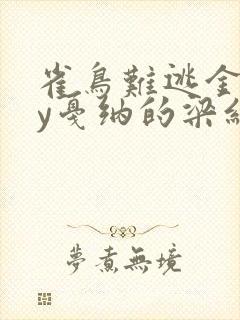 雀鳥難逃金
y戛纳的梁
夢煮無境